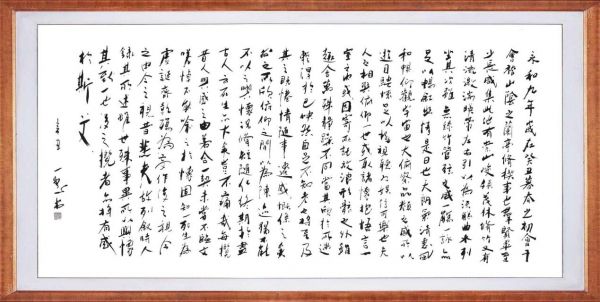 永和九年歲在癸丑暮春之初會于
會稽山陰之蘭亭脩稧事也羣賢畢至
少長咸集此地有崇山峻領茂林脩竹又有
清流激湍暎帶左右引以為流觴曲水列
坐其次雖無絲竹管弦之盛一觴一詠亦
足以暢敘幽情是日也天朗氣清惠風
和暢仰觀宇宙之大俯察品類之盛所以
遊目騁懷足以極視聽之娛信可樂也夫
人之相與俯仰一世或取諸懷抱悟言一
室之內或因寄所託放浪形骸之外雖
趣舍萬殊靜躁不同當其欣於所遇
暫得於己快然自足不知老之將至及
其所之既惓情隨事遷感慨係之矣
向之所欣俛仰之間以為陳迹猶不能
不以之興懷況脩短隨化終期於盡
古人云死生亦大矣豈不痛哉每攬
昔人興感之由若合一契未嘗不臨文
嗟悼不能喻之於懷固知一死生為
虛誕齊彭殤為妄作後之視今
亦由今之視昔悲夫故列敘時人
錄其所述雖世殊事異所以興懷
其致一也後之攬者亦將有感
於斯文
辛丑